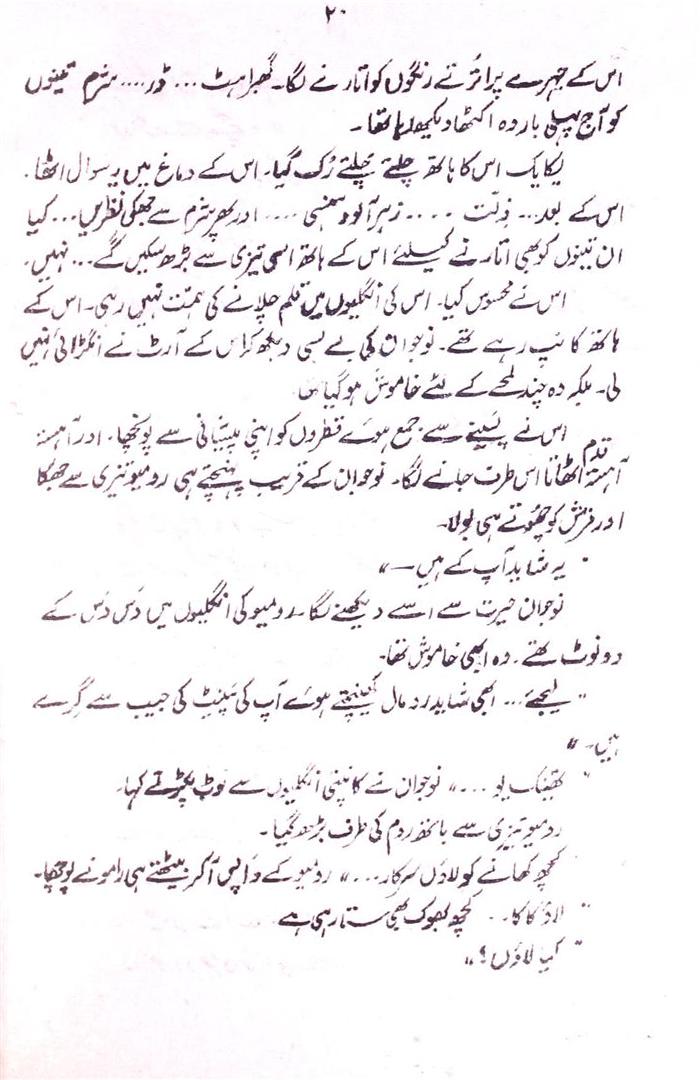 ۲۰
اس کے چہرے پر اترتے رنگوں کو اتارنے لگا۔ گھبراہٹ ... ڈر .... شرم تینوں
کو آج پہلی بار وہ اکٹھا دیکھ رہا تھا۔
یکایک اس کا ہاتھ چلتے چلتے رُک گیا۔ اس کے دماغ میں یہ سوال اٹھا۔
اس کے بعد ... ذِلّت .... زہر آلودہ ہنسی .... اور پھر شرم سے جھکی نظریں ... کیا
ان تینوں کو بھی اتارنے کیلئے اس کے ہاتھ اسی تیزی سے بڑھ سکیں گے ... نہیں۔
اس نے محسوس کیا۔ اس کی انگلیوں میں قلم چلانے کی ہمت نہیں رہی۔ اس کے
ہاتھ کانپ رہے تھے۔ نوجوان کی بے بسی دیکھ کر اس کے آرٹ نے انگڑائی نہیں
لی۔ بلکہ وہ چند لمحے کے لئے خاموش ہو گیا تھا۔
اس نے پسینے سے جمع ہوئے قطروں کو اپنی پیشانی سے پونچھا۔ اور آہستہ
آہستہ قدم اٹھاتا اس طرف جانے لگا۔ نوجوان کے قریب پہنچتے ہی رومیو تیزی سے جھکا
اور فرش کو چھوتے ہی بولا۔
" یہ شاید آپ کے ہیں — "
نوجوان حیرت سے اسے دیکھنے لگا۔ رومیو کی انگلیوں میں دَس دَس کے
دو نوٹ تھے۔ وہ ابھی خاموش تھا۔
" لیجئے ... ابھی شاید رومال کھینچتے ہوئے آپ کی پینٹ کی جیب سے گِرے
ہیں۔ "
" تھینک یو ... " نوجوان نے کانپتی انگلیوں سے نوٹ پکڑتے کہا۔
رومیو تیزی سے باتھ روم کی طرف بڑھ گیا۔
" کچھ کھانے کو لاؤں سرکار ... " رومیو کے واپس آکر بیٹھتے ہی رامو نے پوچھا۔
" لاؤ کاکا .. کچھ بھوک بھی ستا رہی ہے
" کیا لاؤں ؟ "